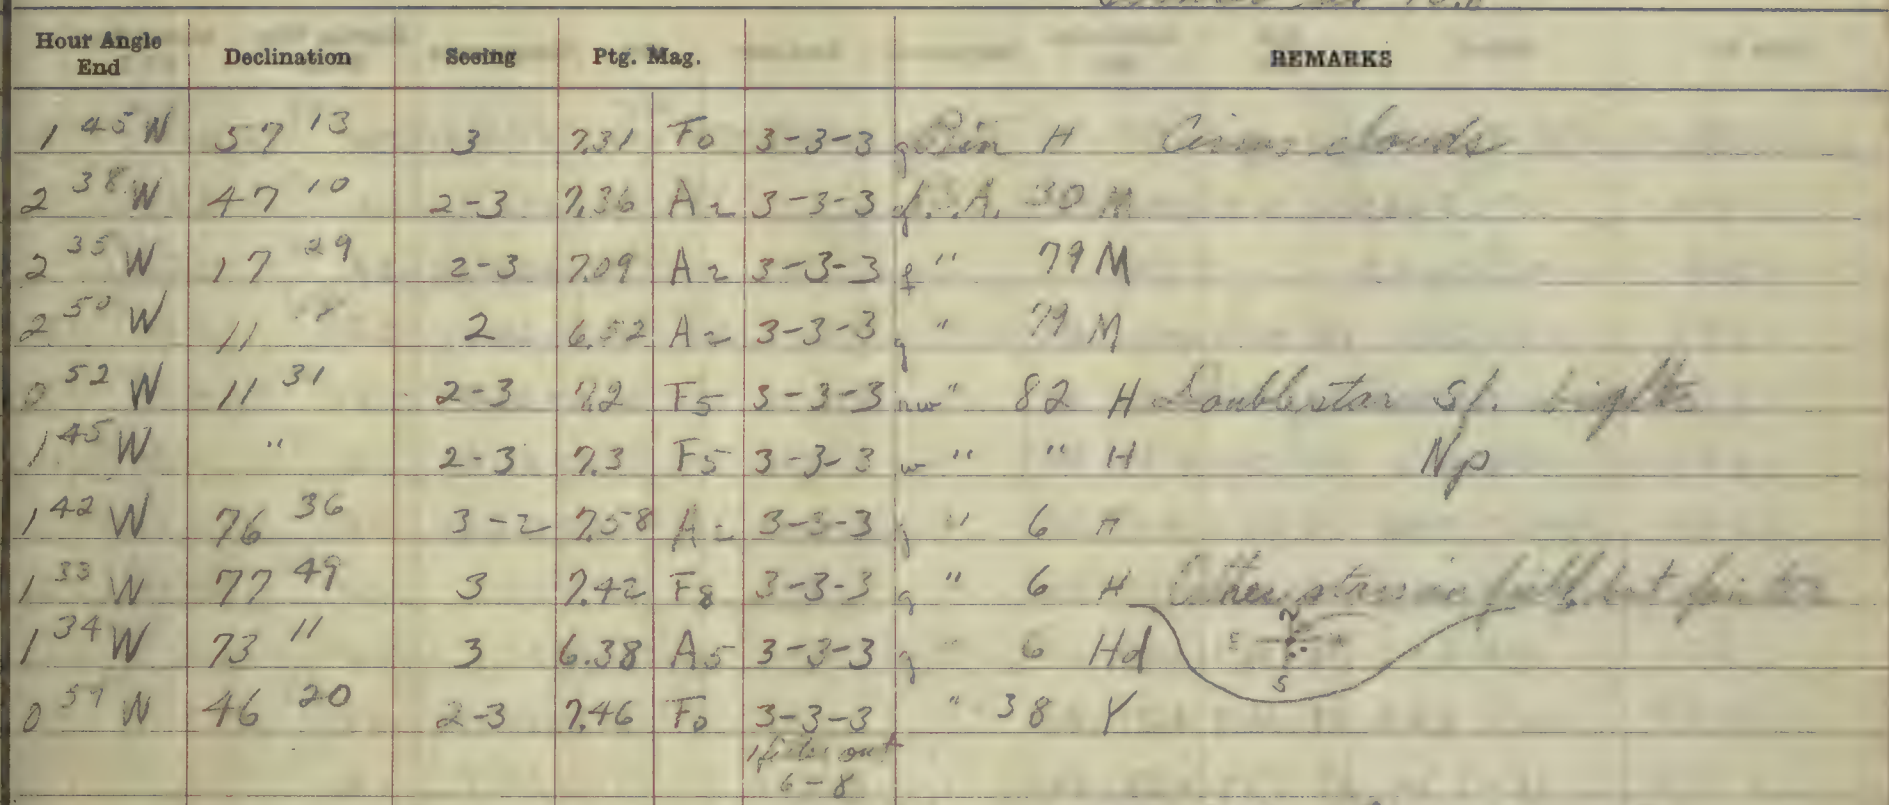 Hour Angle End Declination Seeing Ptg. Mag. REMARKS
1 45 W 57 13 3 7.31 F0 3-3-3 g H Cirrus clouds
2 38 W 47 10 2-3 7.36 A2 3-3-3 30 M
2 35 W 17 29 2-3 7.09 A2 3-3-3 f " 79 M
2 50 W 11 2 6.52 A2 3-3-3 g " 79 M
0 52 W 11 31 2-3 7.2 F5 3-3-3 nw " 82 H Double star Sf.
1 45 W " 2-3 7.3 F5 3-3-3 w " " H Np
1 42 W 76 36 3-2 7.58 A2 3-3-3 g " 6
1 33 W 77 49 3 7.42 F8 3-3-3 g " 6 H Other stars in field but fainter
1 34 W 73 11 3 6.38 A5 3-3-3 g " 6 Hd
N
E
S
0 57 W 46 20 2-3 7.46 F0 3-3-3 " 38 Y
out
6-8